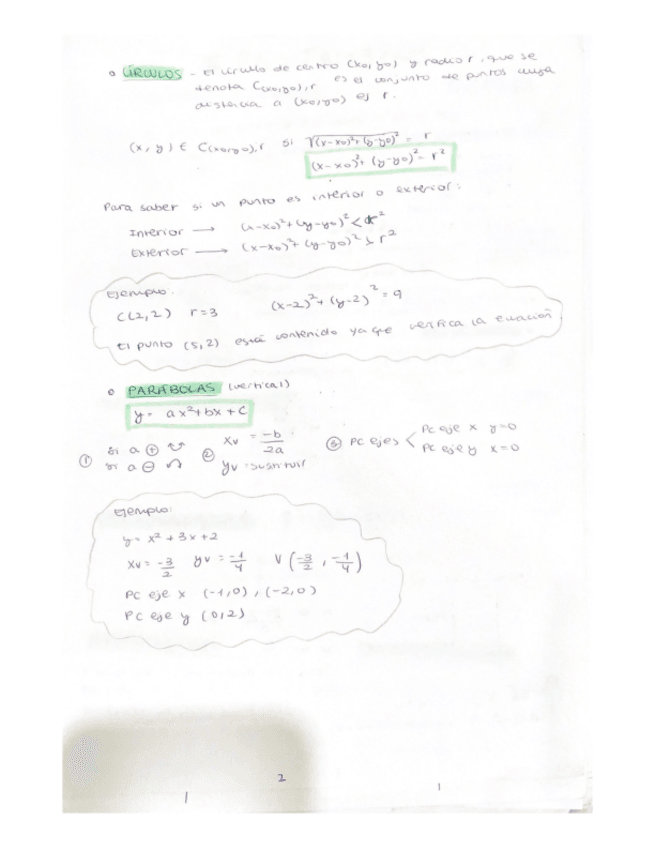 o CÍRCULOS - El círculo de centro (x0, y0) y radio r, que se
denota C(x0,y0),r es el conjunto de puntos cuya
distancia a (x0,y0) es r.
(x, y) ∈ C(x0,y0),r si √(x-x0)²+(y-y0)² = r
(x-x0)²+(y-y0)² = r²
Para saber si un punto es interior o exterior:
Interior → (x-x0)²+(y-y0)² < r²
Exterior → (x-x0)²+(y-y0)² > r²
Ejemplo:
C(2,2) r=3 (x-2)²+(y-2)² = 9
El punto (5,2) está contenido ya que verifica la ecuación
o PARÁBOLAS (vertical)
y= ax²+bx+c
① si a ⊕ ② xv = -b/2a ③ PC ejes < PC eje x y=0
si a ⊖ yv = sustituir PC eje y x=0
Ejemplo:
y= x²+3x+2
xv= -3/2 yv = -1/4 V (-3/2, -1/4)
PC eje x (-1,0), (-2,0)
PC eje y (0,2)
2
1
1